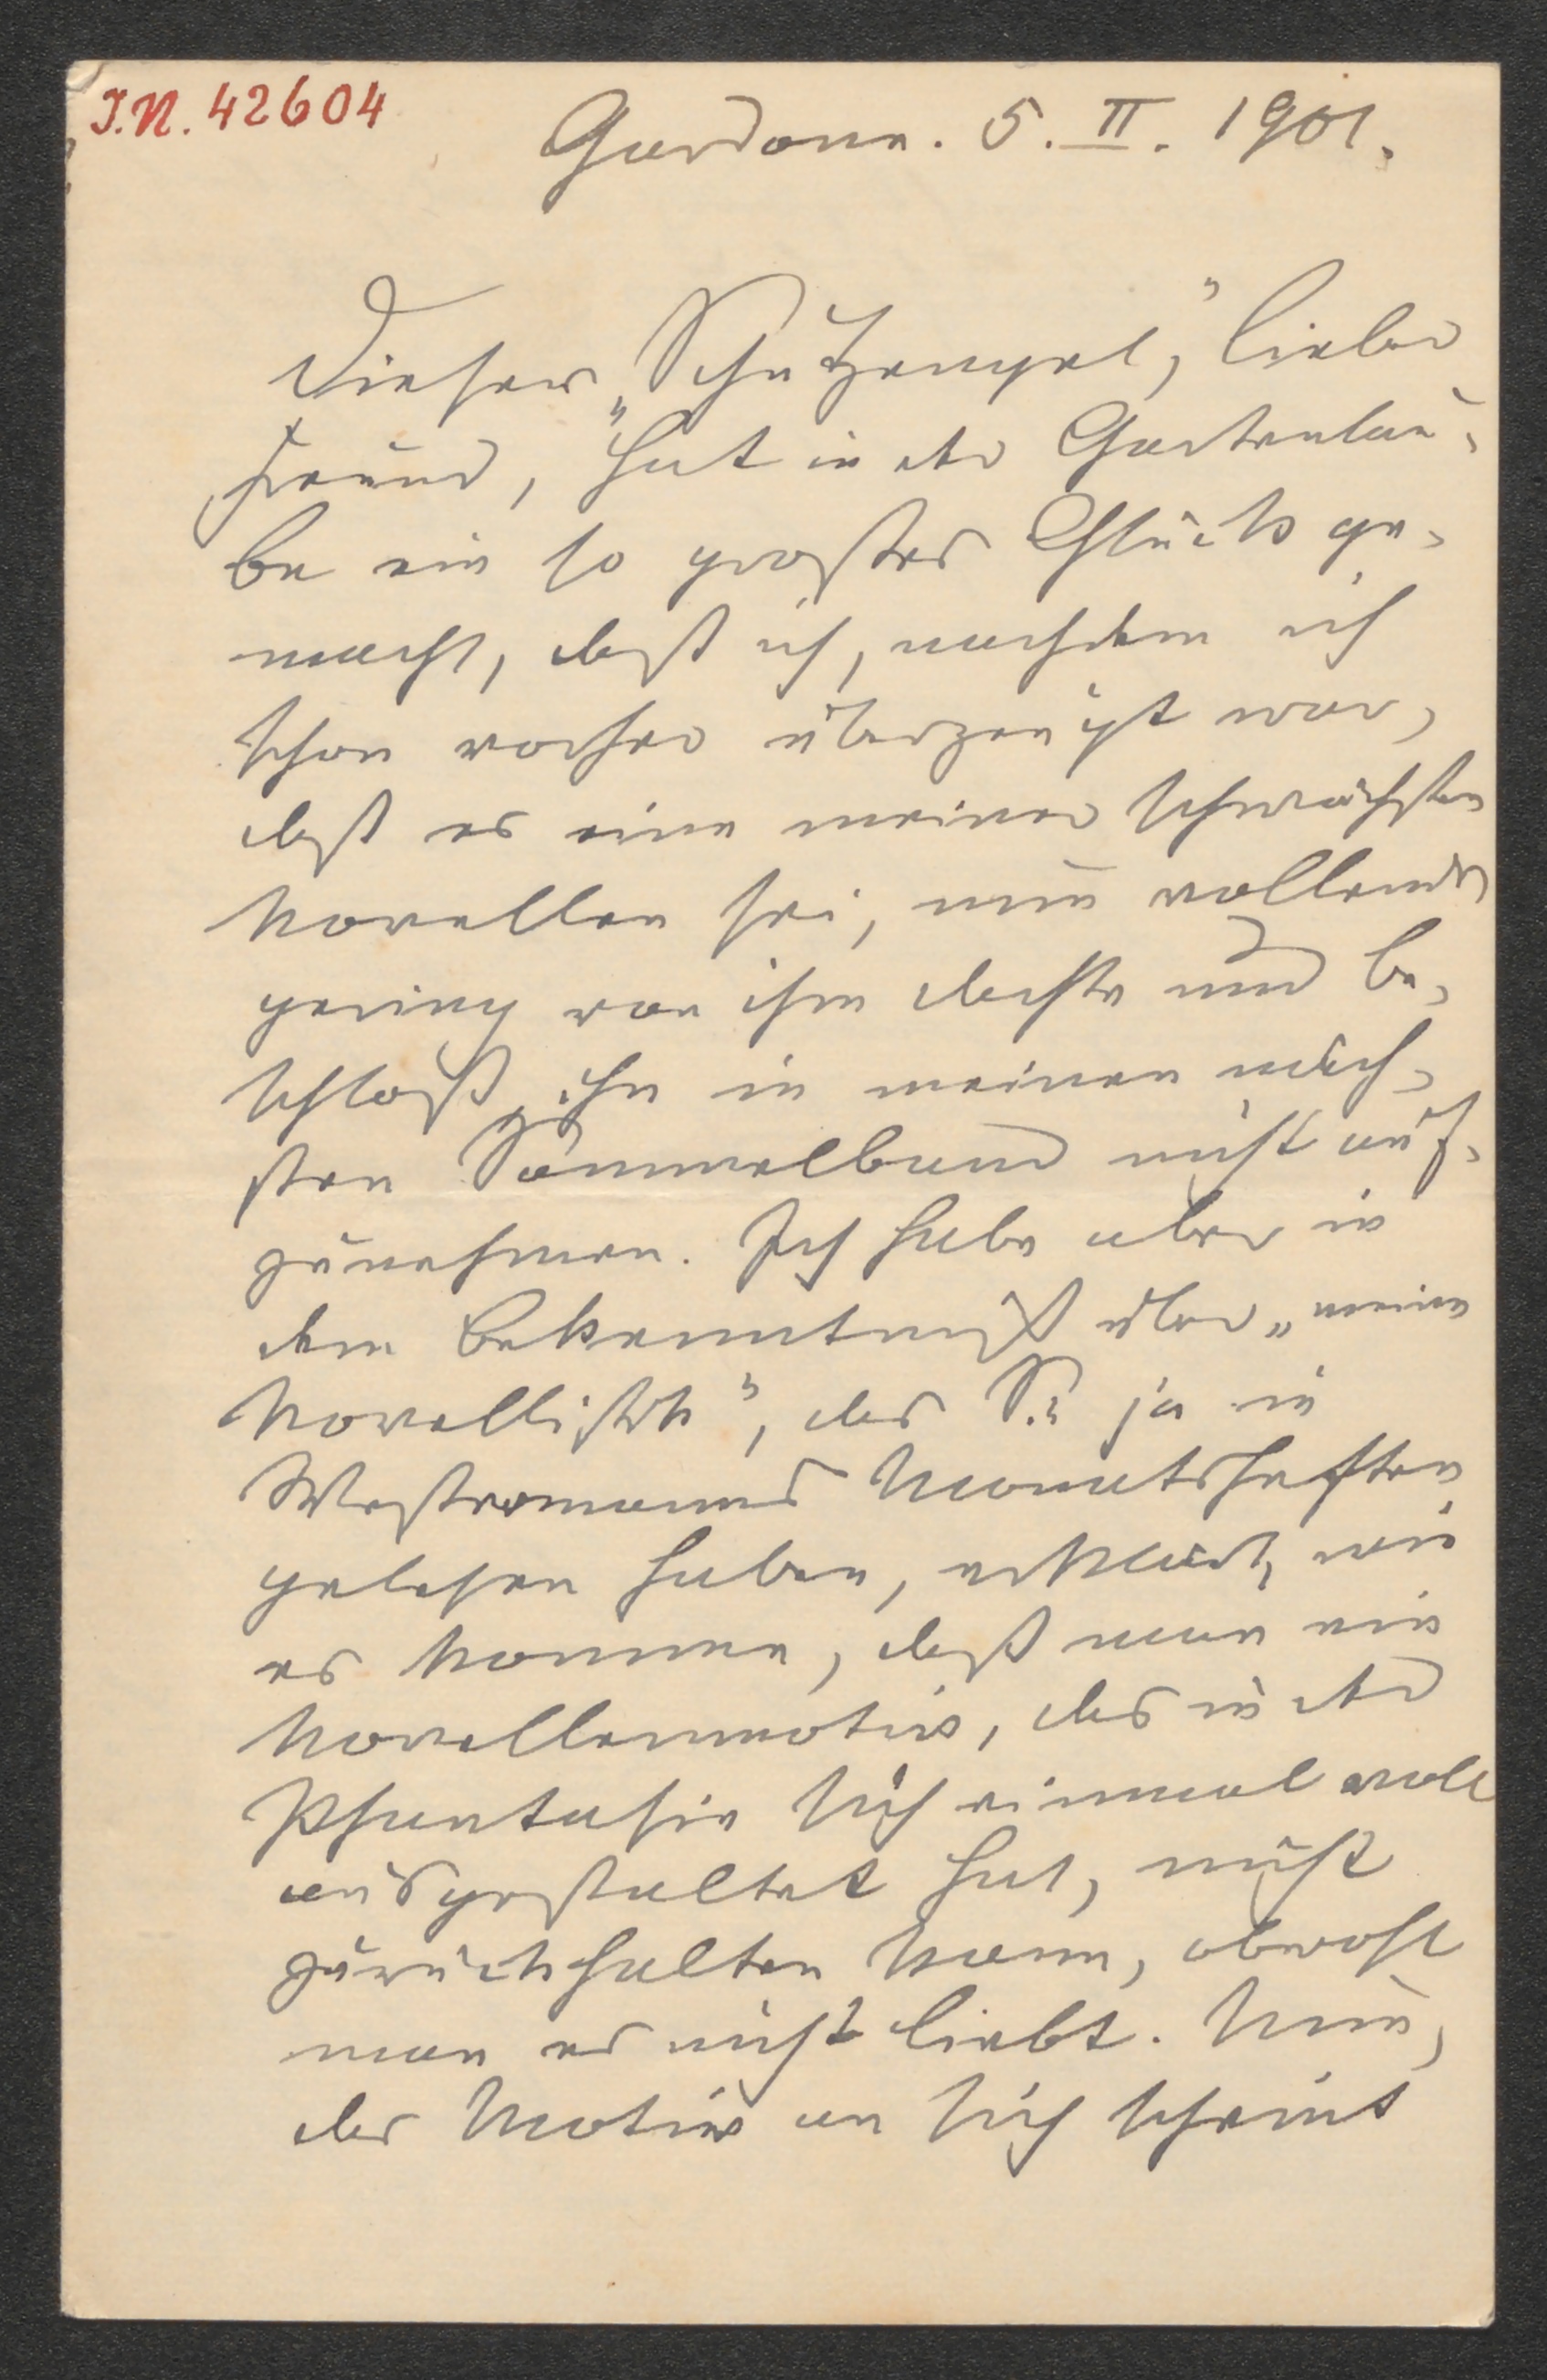 J.N. 42604
Gardone. 5. II. 1901.
Dieser „Schutzengel," lieber
Freund, hat in der Gartenlau-
be ein so großes Glück ge-
macht, daß ich, nachdem ich
schon vorher überzeugt war,
daß es eine meiner schwächsten
Novellen sei, nun vollends
gering von ihm dachte und be-
schloß ihn in meinen näch-
sten Sammelband nicht auf-
zunehmen. Ich habe aber in
dem Bekenntniß über „meine
Novellistik", das Sie ja in
Westermanns Monatsheften
gelesen haben, erklärt, wie
es komme, daß man ein
Novellenmotiv, das in der
Phantasie sich einmal voll
ausgestaltet hat, nicht
zurückhalten kann, obwohl
man es nicht liebt. Nun,
das Motiv an sich scheint